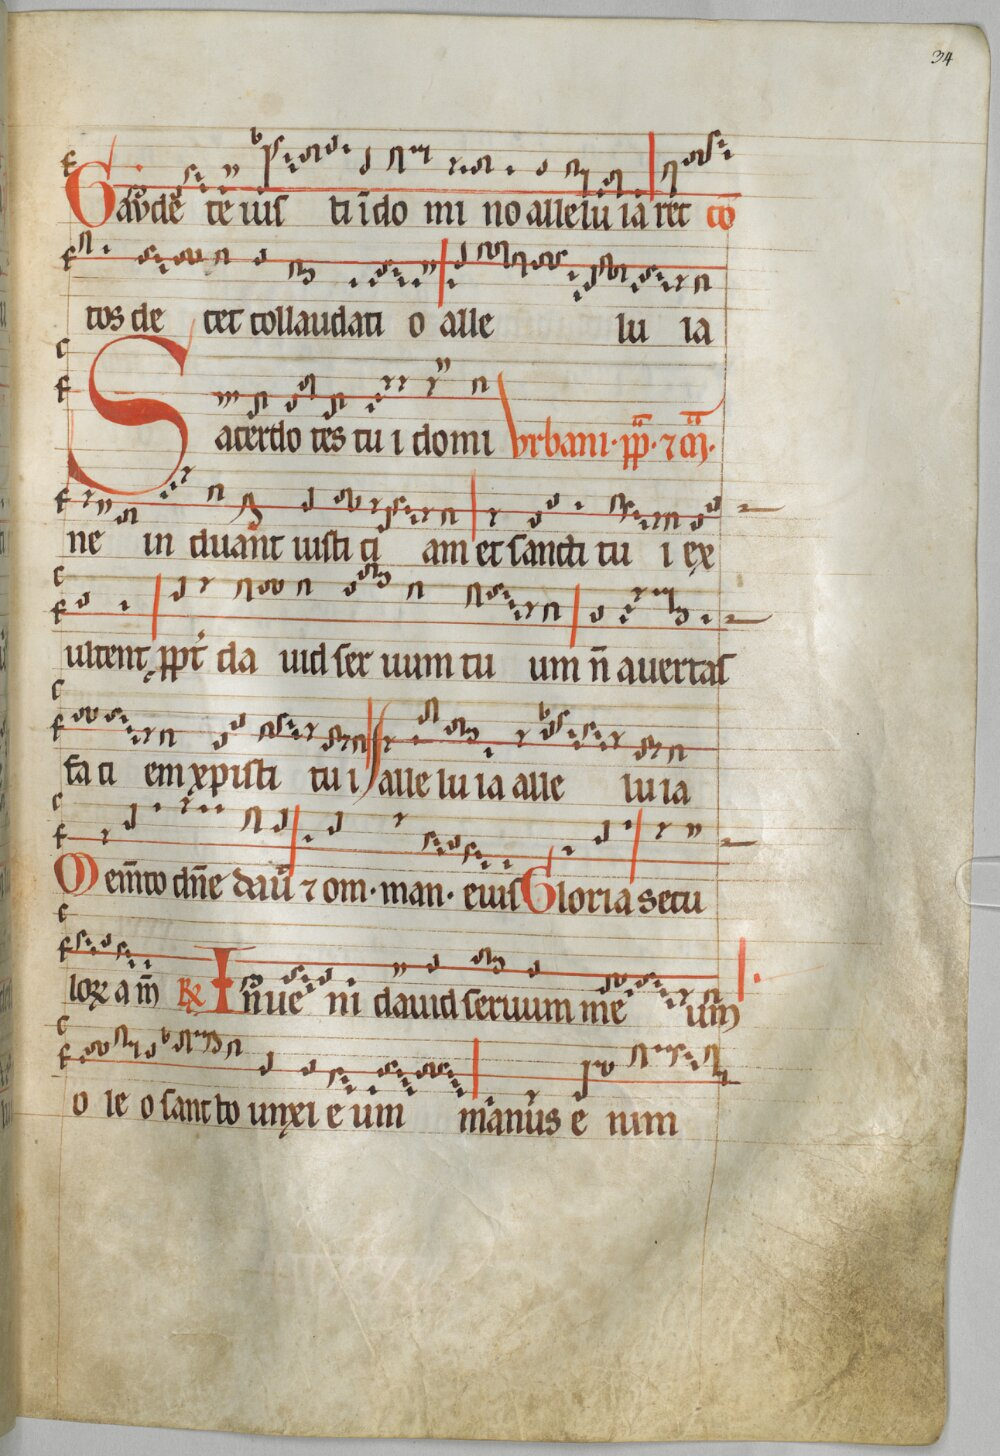 34
Gaude te iusti ī do mi no alleluia rec co
tos de cet collaudati o alle lu ia
Sacerdo tes tu i domi Vrbani · pp̄ · ⁊ m̄ ·
ne in duant iusti ti am et sancti tu i ex
ultent ꝓpt̄ da uid ser uum tu um n̄ auertas
faci em xpisti tu i alle lu ia alle lu ia
Mem̄to dn̄e dauid ⁊ om · man · eius Gloria secu
loꝝ am̄ ℟ Inue ni dauid seruum me um
o le o sancto unxi e um manus e nim